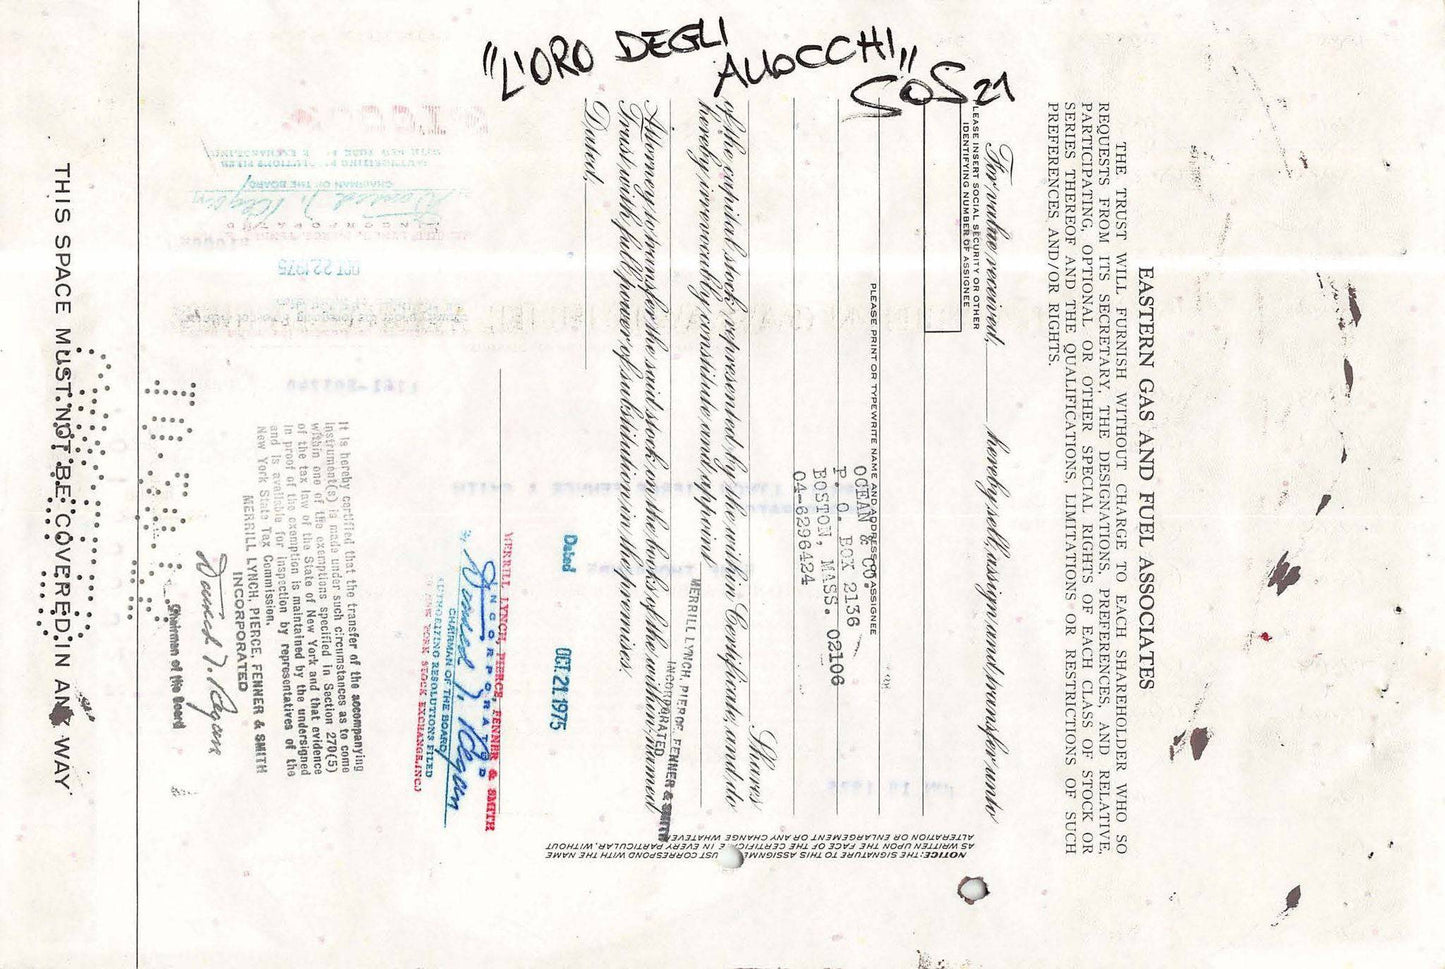 "L'ORO DEGLI
ALLOCCHI"
SOS21
EASTERN GAS AND FUEL ASSOCIATES
THE TRUST WILL FURNISH WITHOUT CHARGE TO EACH SHAREHOLDER WHO SO
REQUESTS FROM ITS SECRETARY, THE DESIGNATIONS, PREFERENCES, AND RELATIVE,
PARTICIPATING, OPTIONAL OR OTHER SPECIAL RIGHTS OF EACH CLASS OF STOCK OR
SERIES THEREOF AND THE QUALIFICATIONS, LIMITATIONS OR RESTRICTIONS OF SUCH
PREFERENCES AND/OR RIGHTS.
For value received, hereby sell, assign and transfer unto
LEASE INSERT SOCIAL SECURITY OR OTHER
IDENTIFYING NUMBER OF ASSIGNEE
PLEASE PRINT OR TYPEWRITE NAME AND ADDRESS OF ASSIGNEE
OCEAN & CO.
P. O. BOX 2136
BOSTON, MASS. 02106
04-6296424
Shares
of the capital stock represented by the within Certificate, and do
hereby irrevocably constitute and appoint
MERRILL LYNCH, PIERCE, FENNER & SMITH
INCORPORATED
Attorney to transfer the said stock on the books of the within named
Trust with full power of substitution in the premises.
Dated,
Dated OCT. 21 1975
NOTICE: THE SIGNATURE TO THIS ASSIGNM UST CORRESPOND WITH THE NAME
AS WRITTEN UPON THE FACE OF THE CERTIFICATE IN EVERY PARTICULAR, WITHOUT
ALTERATION OR ENLARGEMENT OR ANY CHANGE WHATEVER.
MERRILL LYNCH, PIERCE, FENNER & SMITH
INCORPORATED
By Donald T. Regan
CHAIRMAN OF THE BOARD
AUTHORIZING RESOLUTIONS FILED
YORK STOCK EXCHANGE, INC.
It is hereby certified that the transfer of the accompanying
instrument(s) is made under such circumstances as to come
within one of the exemptions specified in Section 270(5)
of the tax law of the State of New York and that evidence
in proof of the exemption is maintained by the undersigned
and is available for inspection by representatives of the
New York State Tax Commission.
MERRILL LYNCH, PIERCE, FENNER & SMITH
INCORPORATED
Donald T. Regan
Chairman of the Board
THIS SPACE MUST NOT BE COVERED IN ANY WAY